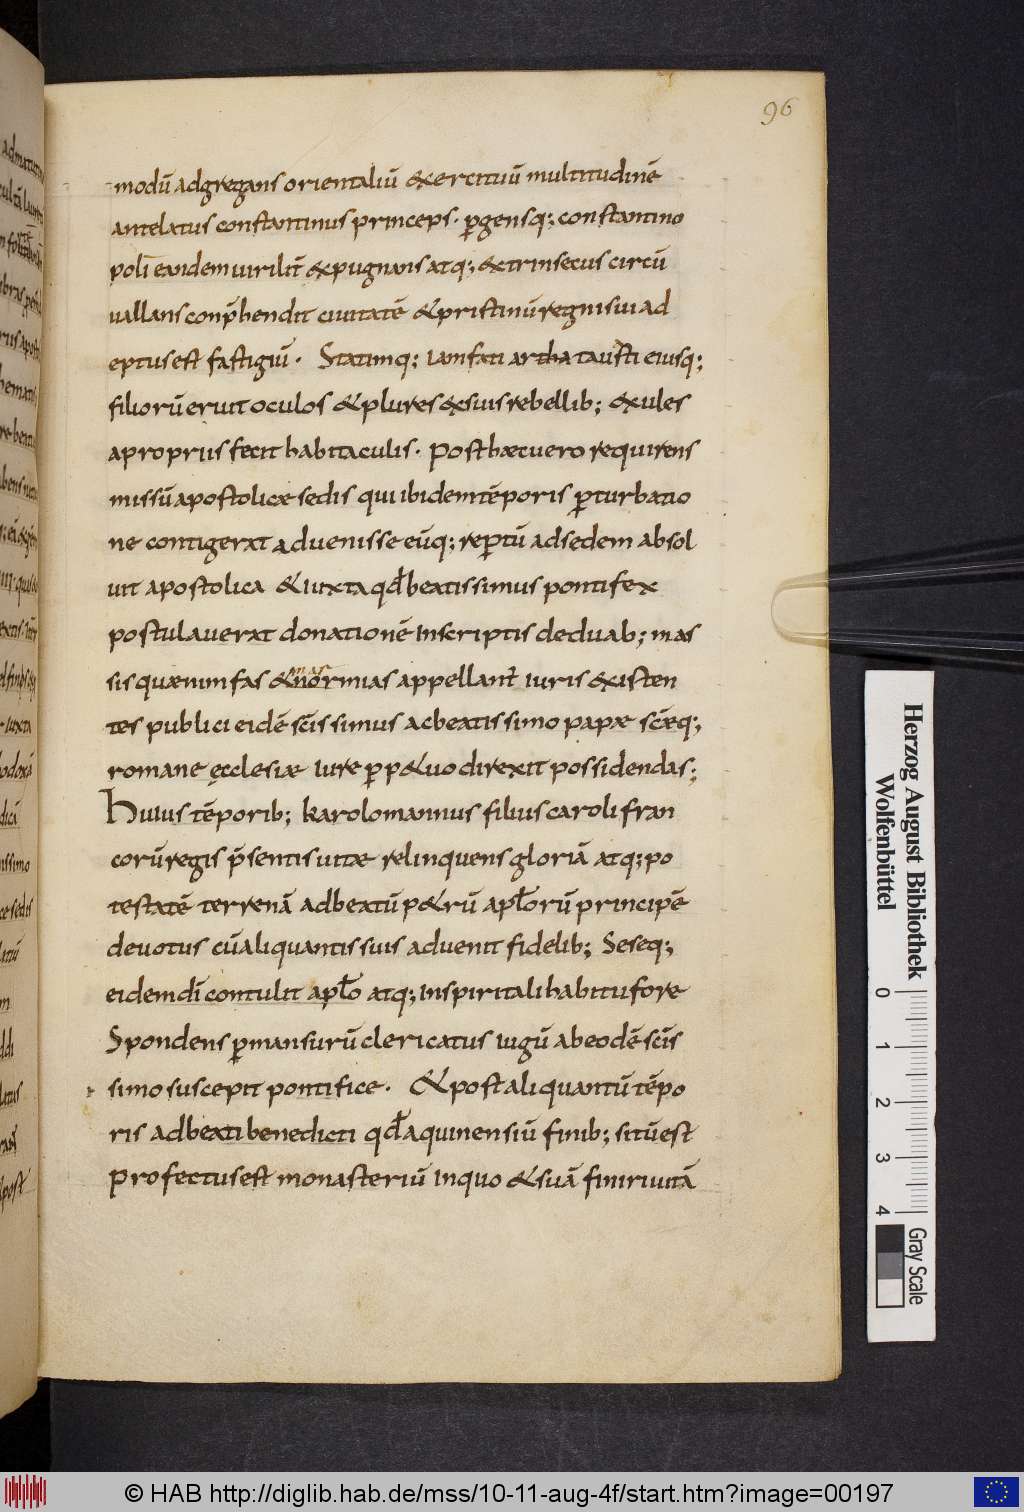 96
modū adgregans orientaliū exercituū multitudinē
antelatus constantinus princeps. p̱gensq; constantino
polī eandem uirilit̄ expugnans atq; extrinsecus circū
uallans conp̄hendit ciuitatē &pristinū regni sui ad
eptus est fastigiū. Statimq; iamfati artha tausti eiusq;
filiorū eruit oculos &plures exsuis rebellib; exules
a propriis fecit habitaculis. Post hæc uero requirens
missū apostolicæ sedis qui ibidem tēporis p̱turbatio
ne contigerat aduenisse eūq; rep̱tū adsedem absol
uit apostolica &iuxta qđ beatissimus pontifex
postulauerat donationē inscriptis deduab; mas
sis quænimfas &normias appellant̄ iuris existen
mas
tes publici eidē sc̄issimus ac beatissimo papæ sc̄æq;
romane ęcclesiæ iure p̱p&uo direxit possidendas;
Huius tēporib; karolomannus filius caroli fran
corū regis p̄sentis uitæ relinquens gloriā atq; po
testatē terrenā adbeatū p&rū apl̄orū principē
deuotus cū aliquantis suis aduenit fidelib; Seseq;
eidem dī contulit apl̄o atq; inspiritali habitu fore
Spondens p̱mansurū clericatus iugū abeodē sc̄is
simo suscepit pontifice. &post aliquantū tēpo
ris adbeati benedicti qđ aquinensiū finib; sitū est
profectus est monasteriū inquo &suā finiri uitā
Herzog August Bibliothek
Wolfenbüttel
0 1 2 3 4
Gray Scale
© HAB http://diglib.hab.de/mss/10-11-aug-4f/start.htm?image=00197